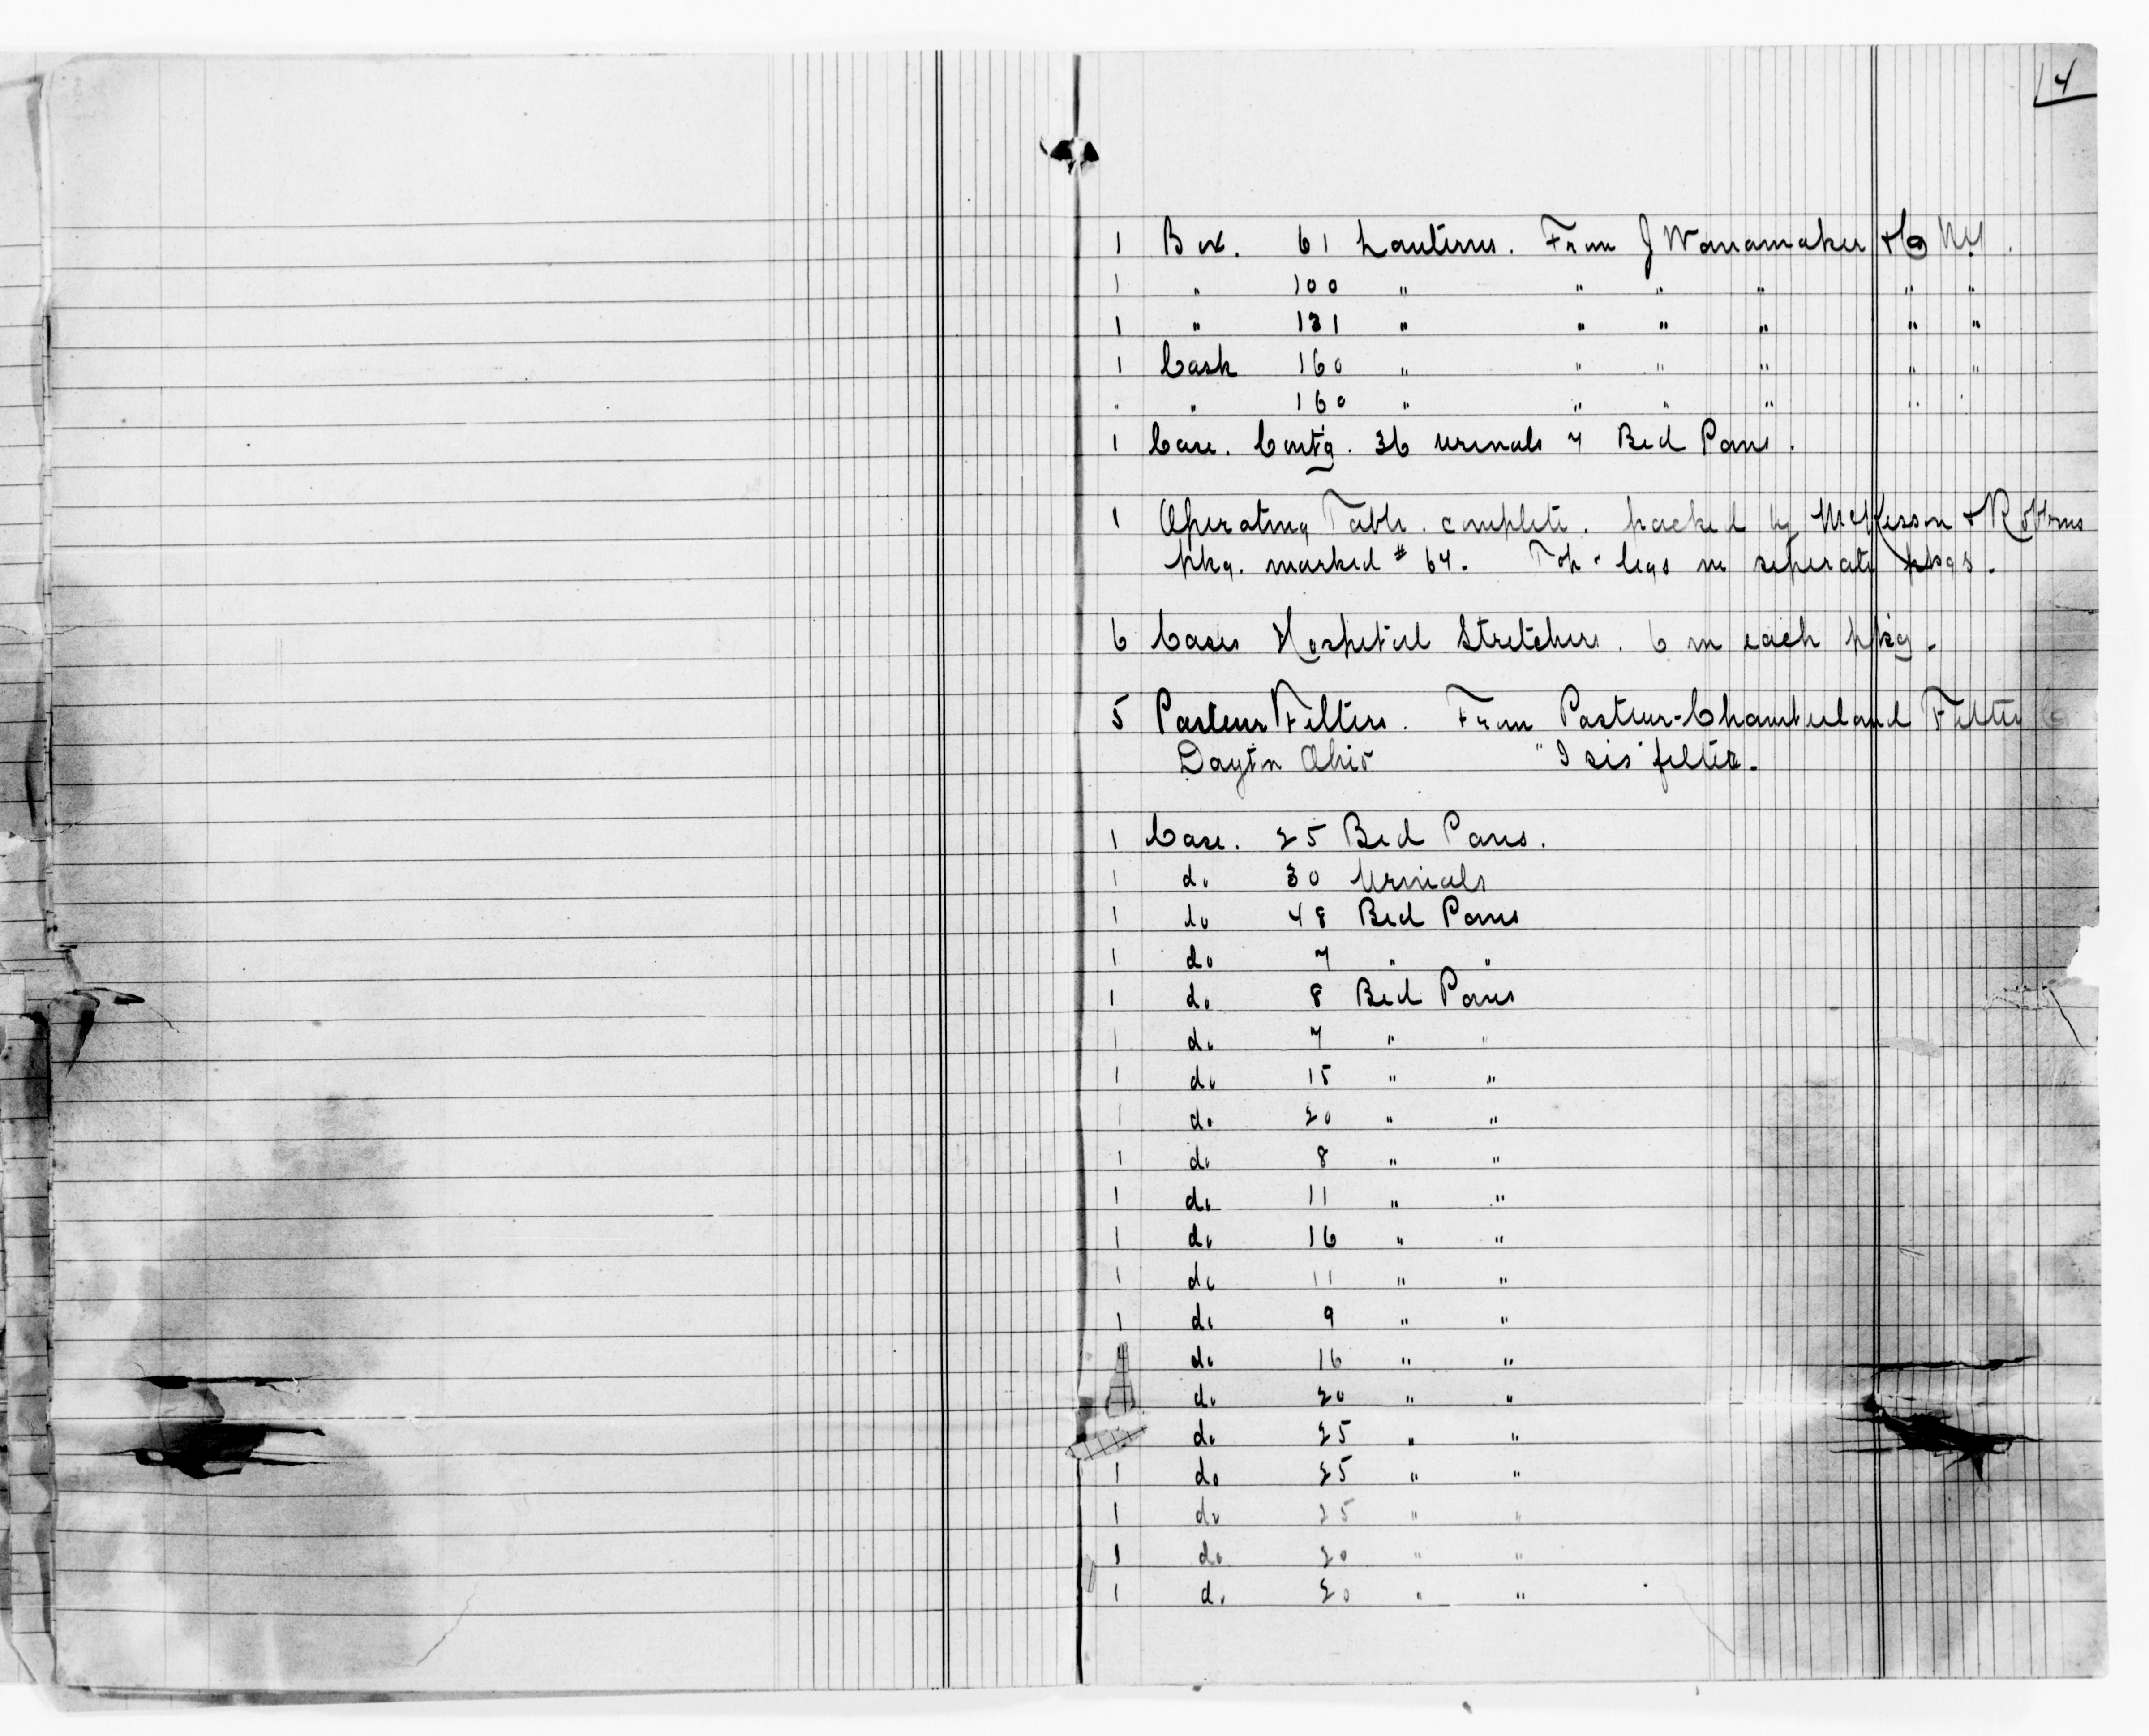 4
1 Box. 61 Lanterns. From J Wanamaker & Co N.Y.
1 " 100 " " " " " "
1 " 131 " " " " " "
1 Cask 160 " " " " " "
" " 160 " " " " " "
1 Case. Contg. 36 urinals 7 Bed Pans.
1 Operating Table. complete. packed by McKesson & Robbins
pkg. marked # 64. Top & legs in seperate pkgs.
6 Cases Hospital Stretchers. 6 in each pkg.
5 Pasteur Filters. From Pasteur-Chamberland Filter Co
Dayton Ohio "Isis" filter.
1 Case. 25 Bed Pans.
1 do 30 Urinals
1 do 48 Bed Pans
1 do 7 " "
1 do 8 Bed Pans
1 do 7 " "
1 do 15 " "
1 do 20 " "
1 do 8 " "
1 do 11 " "
1 do 16 " "
1 do 11 " "
1 do 9 " "
do 16 " "
do 20 " "
do 25 " "
1 do 25 " "
1 do 25 " "
1 do 20 " "
1 do 20 " "